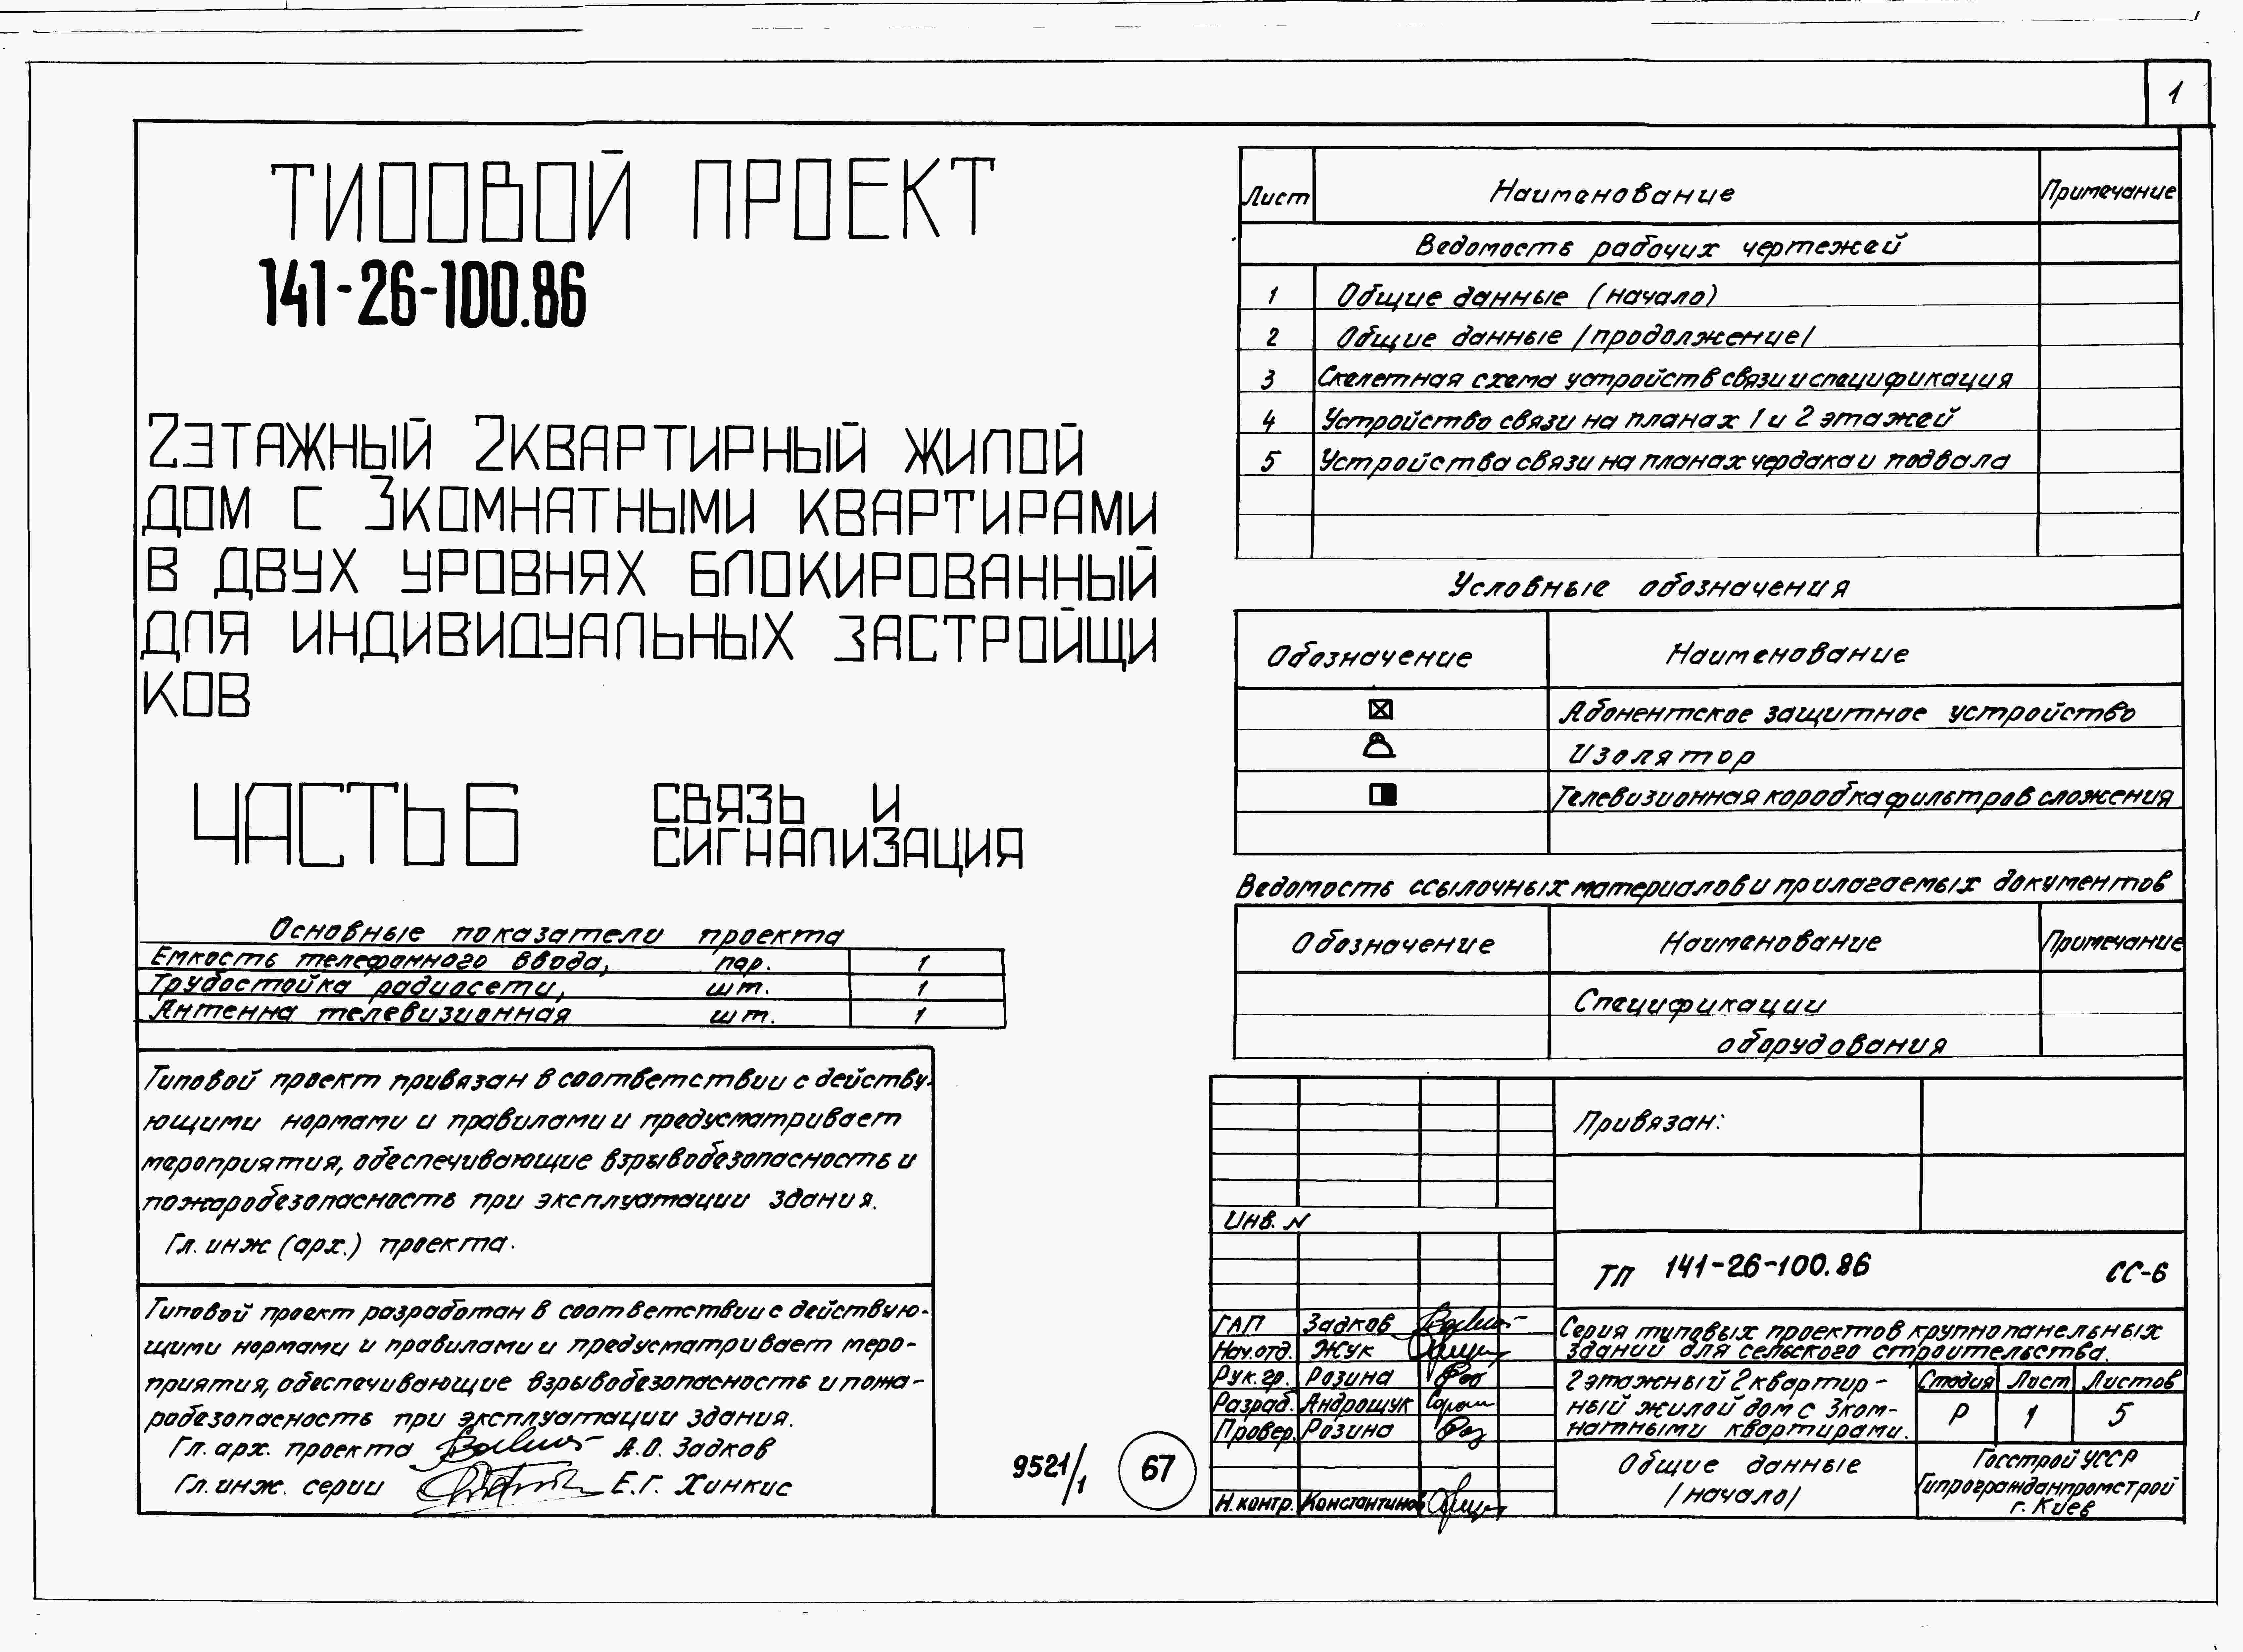 1
ТИПОВОЙ ПРОЕКТ
141-26-100.86
2ЭТАЖНЫЙ 2КВАРТИРНЫЙ ЖИЛОЙ
ДОМ С 3КОМНАТНЫМИ КВАРТИРАМИ
В ДВУХ УРОВНЯХ БЛОКИРОВАННЫЙ
ДЛЯ ИНДИВИДУАЛЬНЫХ ЗАСТРОЙЩИ
КОВ
ЧАСТЬ 6 СВЯЗЬ И
СИГНАЛИЗАЦИЯ
Основные показатели проекта
Емкость телефонного ввода, пар. 1
Трубостойка радиосети, шт. 1
Антенна телевизионная шт. 1
Типовой проект привязан в соответствии с действу-
ющими нормами и правилами и предусматривает
мероприятия, обеспечивающие взрывобезопасность и
пожаробезопасность при эксплуатации здания.
Гл. инж (арх.) проекта.
Типовой проект разработан в соответствии с действую-
щими нормами и правилами и предусматривает меро-
приятия, обеспечивающие взрывобезопасность и пожа-
робезопасность при эксплуатации здания.
Гл. арх. проекта А.О. Задков
Гл. инж. серии Е.Г. Хинкис
9521/1 67
Лист Наименование Примечание
Ведомость рабочих чертежей
1 Общие данные (начало)
2 Общие данные /продолжение/
3 Скелетная схема устройств связи и спецификация
4 Устройство связи на планах 1 и 2 этажей
5 Устройства связи на планах чердака и подвала
Условные обозначения
Обозначение Наименование
Абонентское защитное устройство
Изолятор
Телевизионная коробка фильтров сложения
Ведомость ссылочных материалов и прилагаемых документов
Обозначение Наименование Примечание
Спецификации
оборудования
Привязан:
Инв. N
ТП 141-26-100.86 СС-6
ГАП Задков
Нач.отд. Жук
Рук.гр. Розина
Разраб. Андрощук
Провер. Розина
Н.контр. Константинов
Серия типовых проектов крупнопанельных
зданий для сельского строительства.
2 этажный 2 квартир-
ный жилой дом с 3ком-
натными квартирами.
Стадия Лист Листов
Р 1 5
Общие данные
/начало/
Госстрой УССР
Гипрогражданпромстрой
г. Киев